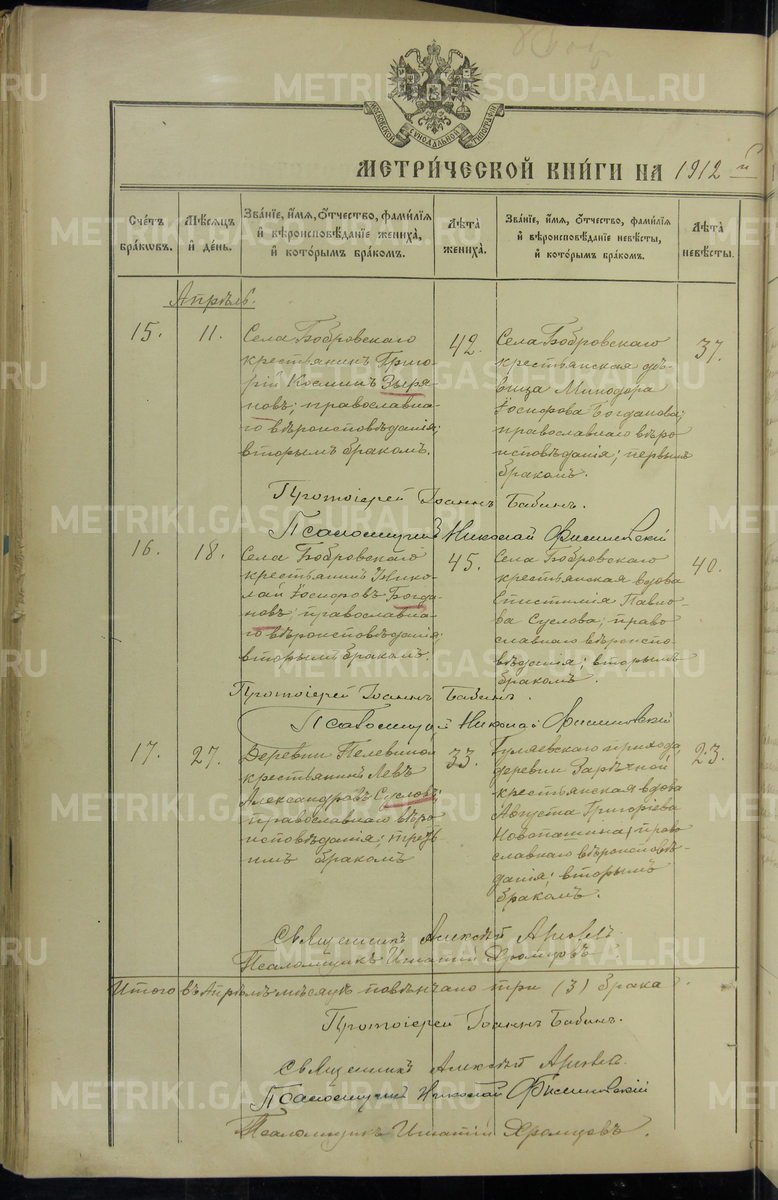 МОСКОВСКОЙ СУНОДАЛЬНОЙ ТИПОГРАФІИ
МЕТРИ́ЧЕСКОЙ КНИ́ГИ НА 1912 й
Сче́тъ бра́кωвъ.
Мѣ́сяцъ и҆ де́нь.
Зва́нїе, и҆́мѧ, ѻ҆́тчество, фами́лїѧ и҆ вѣроисповѣ́данїе жениха̀, и҆ кото́рымъ бра́комъ.
Лѣ́та жениха̀.
Зва́нїе, и҆́мѧ, ѻ҆́тчество, фами́лїѧ и҆ вѣроисповѣ́данїе невѣ́сты, и҆ кото́рымъ бра́комъ.
Лѣ́та невѣ́сты.
Апрѣль.
15.
11.
Села Бобровскаго
крестьянинъ Григо-
рій Косминъ Зыря-
новъ; православна-
го вѣроисповѣданія;
вторымъ бракомъ.
42.
Села Бобровскаго
крестьянская дѣ-
вица Минодора
Іосифова Богданова;
православнаго вѣро
исповѣданія; первымъ
бракомъ.
37.
Протоіерей Іоаннъ Бабинъ.
Псаломщикъ Николай
16.
18.
Села Бобровскаго
крестьянинъ Нико-
лай Іосифовъ Богда-
новъ; православна-
го вѣроисповѣданія;
вторымъ бракомъ.
45.
Села Бобровскаго
крестьянская вдова
Епистимія Павло-
ва Суслова; право
славнаго вѣроиспо-
вѣданія; вторымъ
бракомъ.
40.
Протоіерей Іоаннъ Бабинъ.
Псаломщикъ Николай
17.
27.
Деревни
крестьянинъ Левъ
Александровъ Сусловъ;
православнаго вѣро
исповѣданія; треть
имъ бракомъ
33.
прихода,
деревни Зарѣчной
крестьянская вдова
Августа Григоріева
Новопашина; право
славнаго вѣроисповѣ-
данія; вторымъ
бракомъ.
23.
Священникъ Алексѣй
Псаломщикъ Игнатій Хромцовъ
Итого въ Апрѣлѣ мѣсяцѣ повѣнчано три (3) брака.
Протоіерей Іоаннъ Бабинъ.
Священникъ Алексѣй
Псаломщикъ Николай
Псаломщикъ Игнатій Хромцовъ.
METRIKI.GASO-URAL.RU